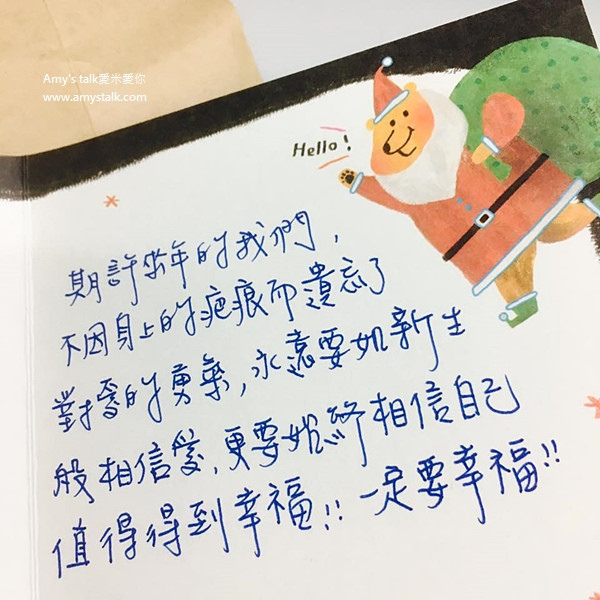 Amy's talk愛米愛你
www.amystalk.com
Hello!
期許年的我們,
不因身上的疤痕而遺忘了
對愛的勇氣,永遠要如新生
般相信愛,更要始終相信自己
值得得到幸福!! 一定要幸福!!